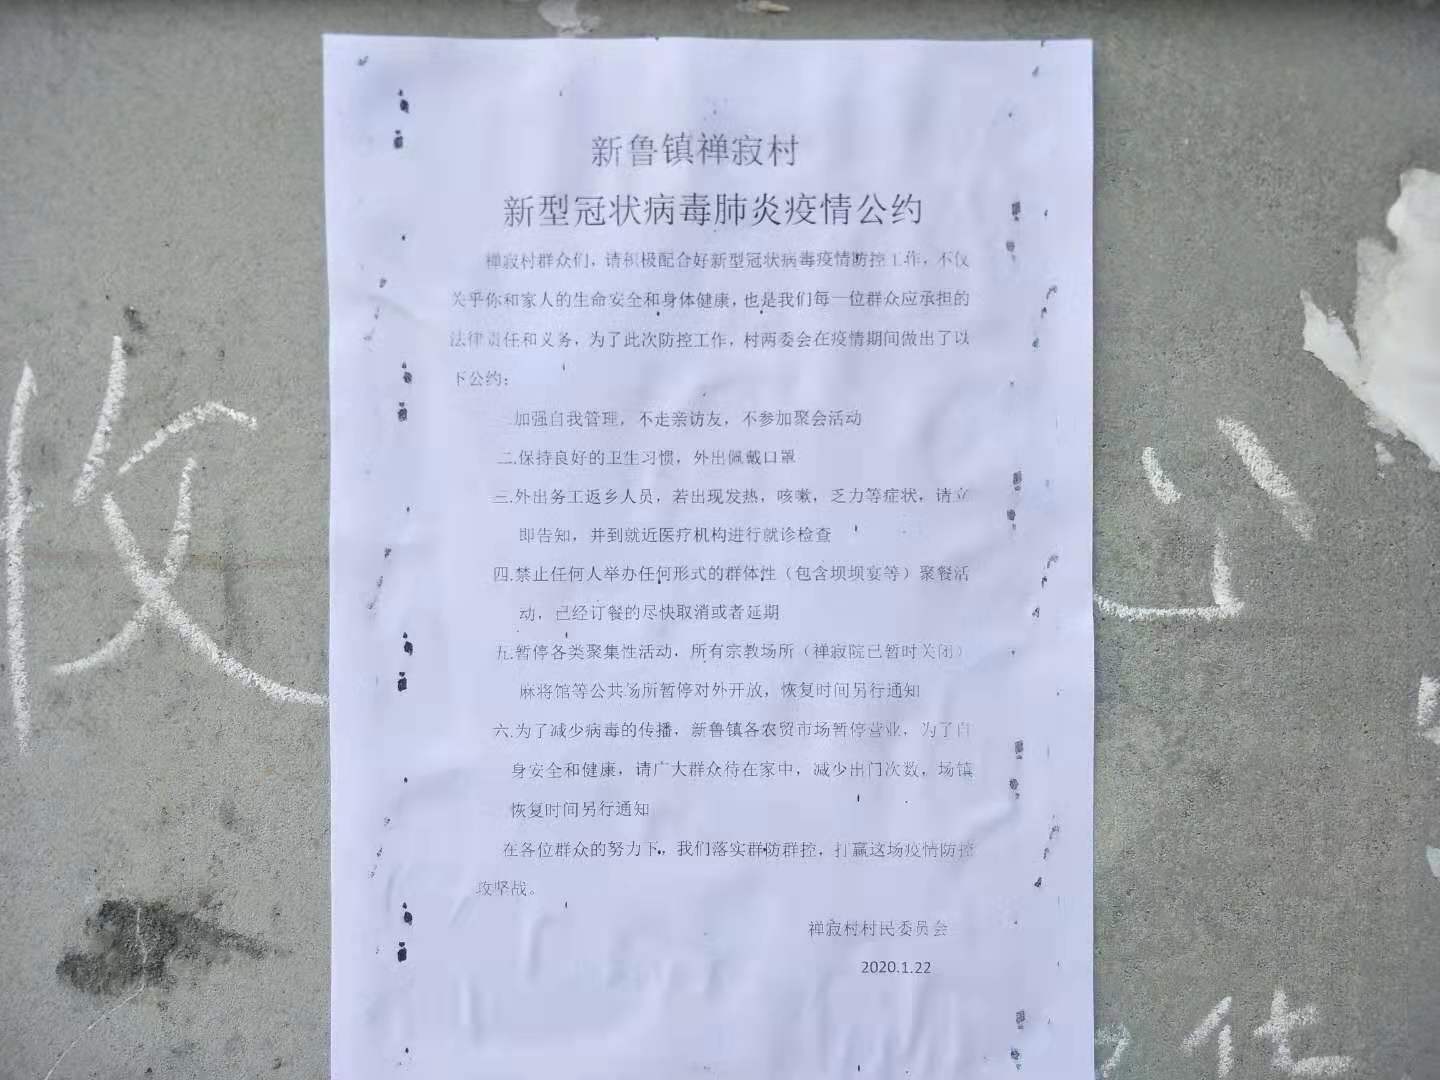 新鲁镇禅寂村
新型冠状病毒肺炎疫情公约
禅寂村群众们，请积极配合好新型冠状病毒疫情防控工作，不仅
关乎你和家人的生命安全和身体健康，也是我们每一位群众应承担的
法律责任和义务，为了此次防控工作，村两委会在疫情期间做出了以
下公约：
.加强自我管理，不走亲访友，不参加聚会活动
二.保持良好的卫生习惯，外出佩戴口罩
三.外出务工返乡人员，若出现发热，咳嗽，乏力等症状，请立
即告知，并到就近医疗机构进行就诊检查
四.禁止任何人举办任何形式的群体性（包含坝坝宴等）聚餐活
动，已经订餐的尽快取消或者延期
五.暂停各类聚集性活动，所有宗教场所（禅寂院已暂时关闭）
麻将馆等公共场所暂停对外开放，恢复时间另行通知
六.为了减少病毒的传播，新鲁镇各农贸市场暂停营业，为了自
身安全和健康，请广大群众待在家中，减少出门次数，场镇
恢复时间另行通知
在各位群众的努力下，我们落实群防群控，打赢这场疫情防控
攻坚战。
禅寂村村民委员会
2020.1.22